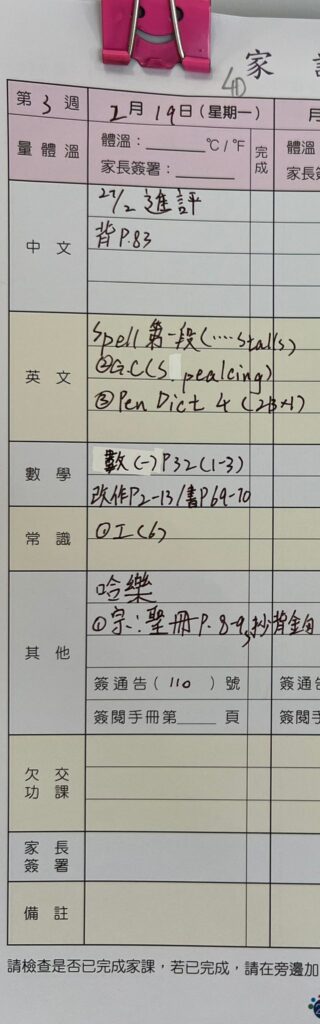 家
4D
第 3 週
2 月 19 日 (星期一)
月
量 體 溫
體溫：______ °C / °F
家長簽署：______
完成
體溫：
家長簽
中 文
27/2 進評
背P.83
英 文
Spell 第一段(....stalls)
②G.C(S pealcing)
③Pen Dict 4 (2B×1)
數 學
數(一)P32(1-3)
改作P2-13/書P69-70
常 識
①I(6)
其 他
哈樂
①宗:聖冊P.8-9,抄背金句
簽通告( 110 )號
簽閱手冊第____頁
簽通告
簽閱手
欠 交
功 課
家 長
簽 署
備 註
請檢查是否已完成家課，若已完成，請在旁邊加